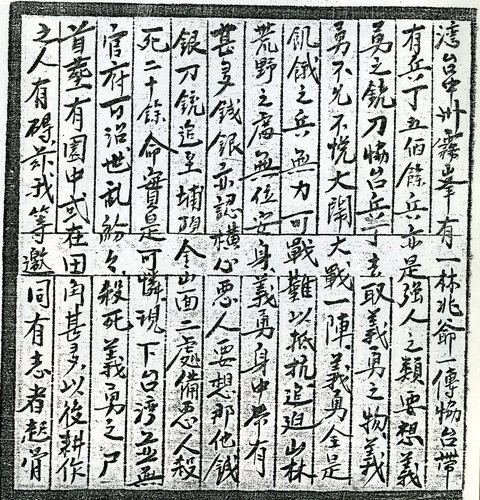 湾台中州霧峯有一林兆爺一傳協台帶
有兵丁五佰餘兵亦是强人之類要想義
勇之銃刀協台兵丁去取義勇之物義
勇不允不悦大鬧大戰一陣義勇全是
飢餓之兵無力可戰難以抵抗追迫山林
荒野之處無位安身義勇身中帶有
甚多錢銀亦認横心悪人要想那他錢
銀刀銃追至埔頭金山面二處備悪人殺
死二十餘命實是可憐現下台湾並無
官府可治世乱紛々殺死義勇之尸
首塟有園中或在田角甚多以後耕作
之人有碍茲我等邀同有志者起骨